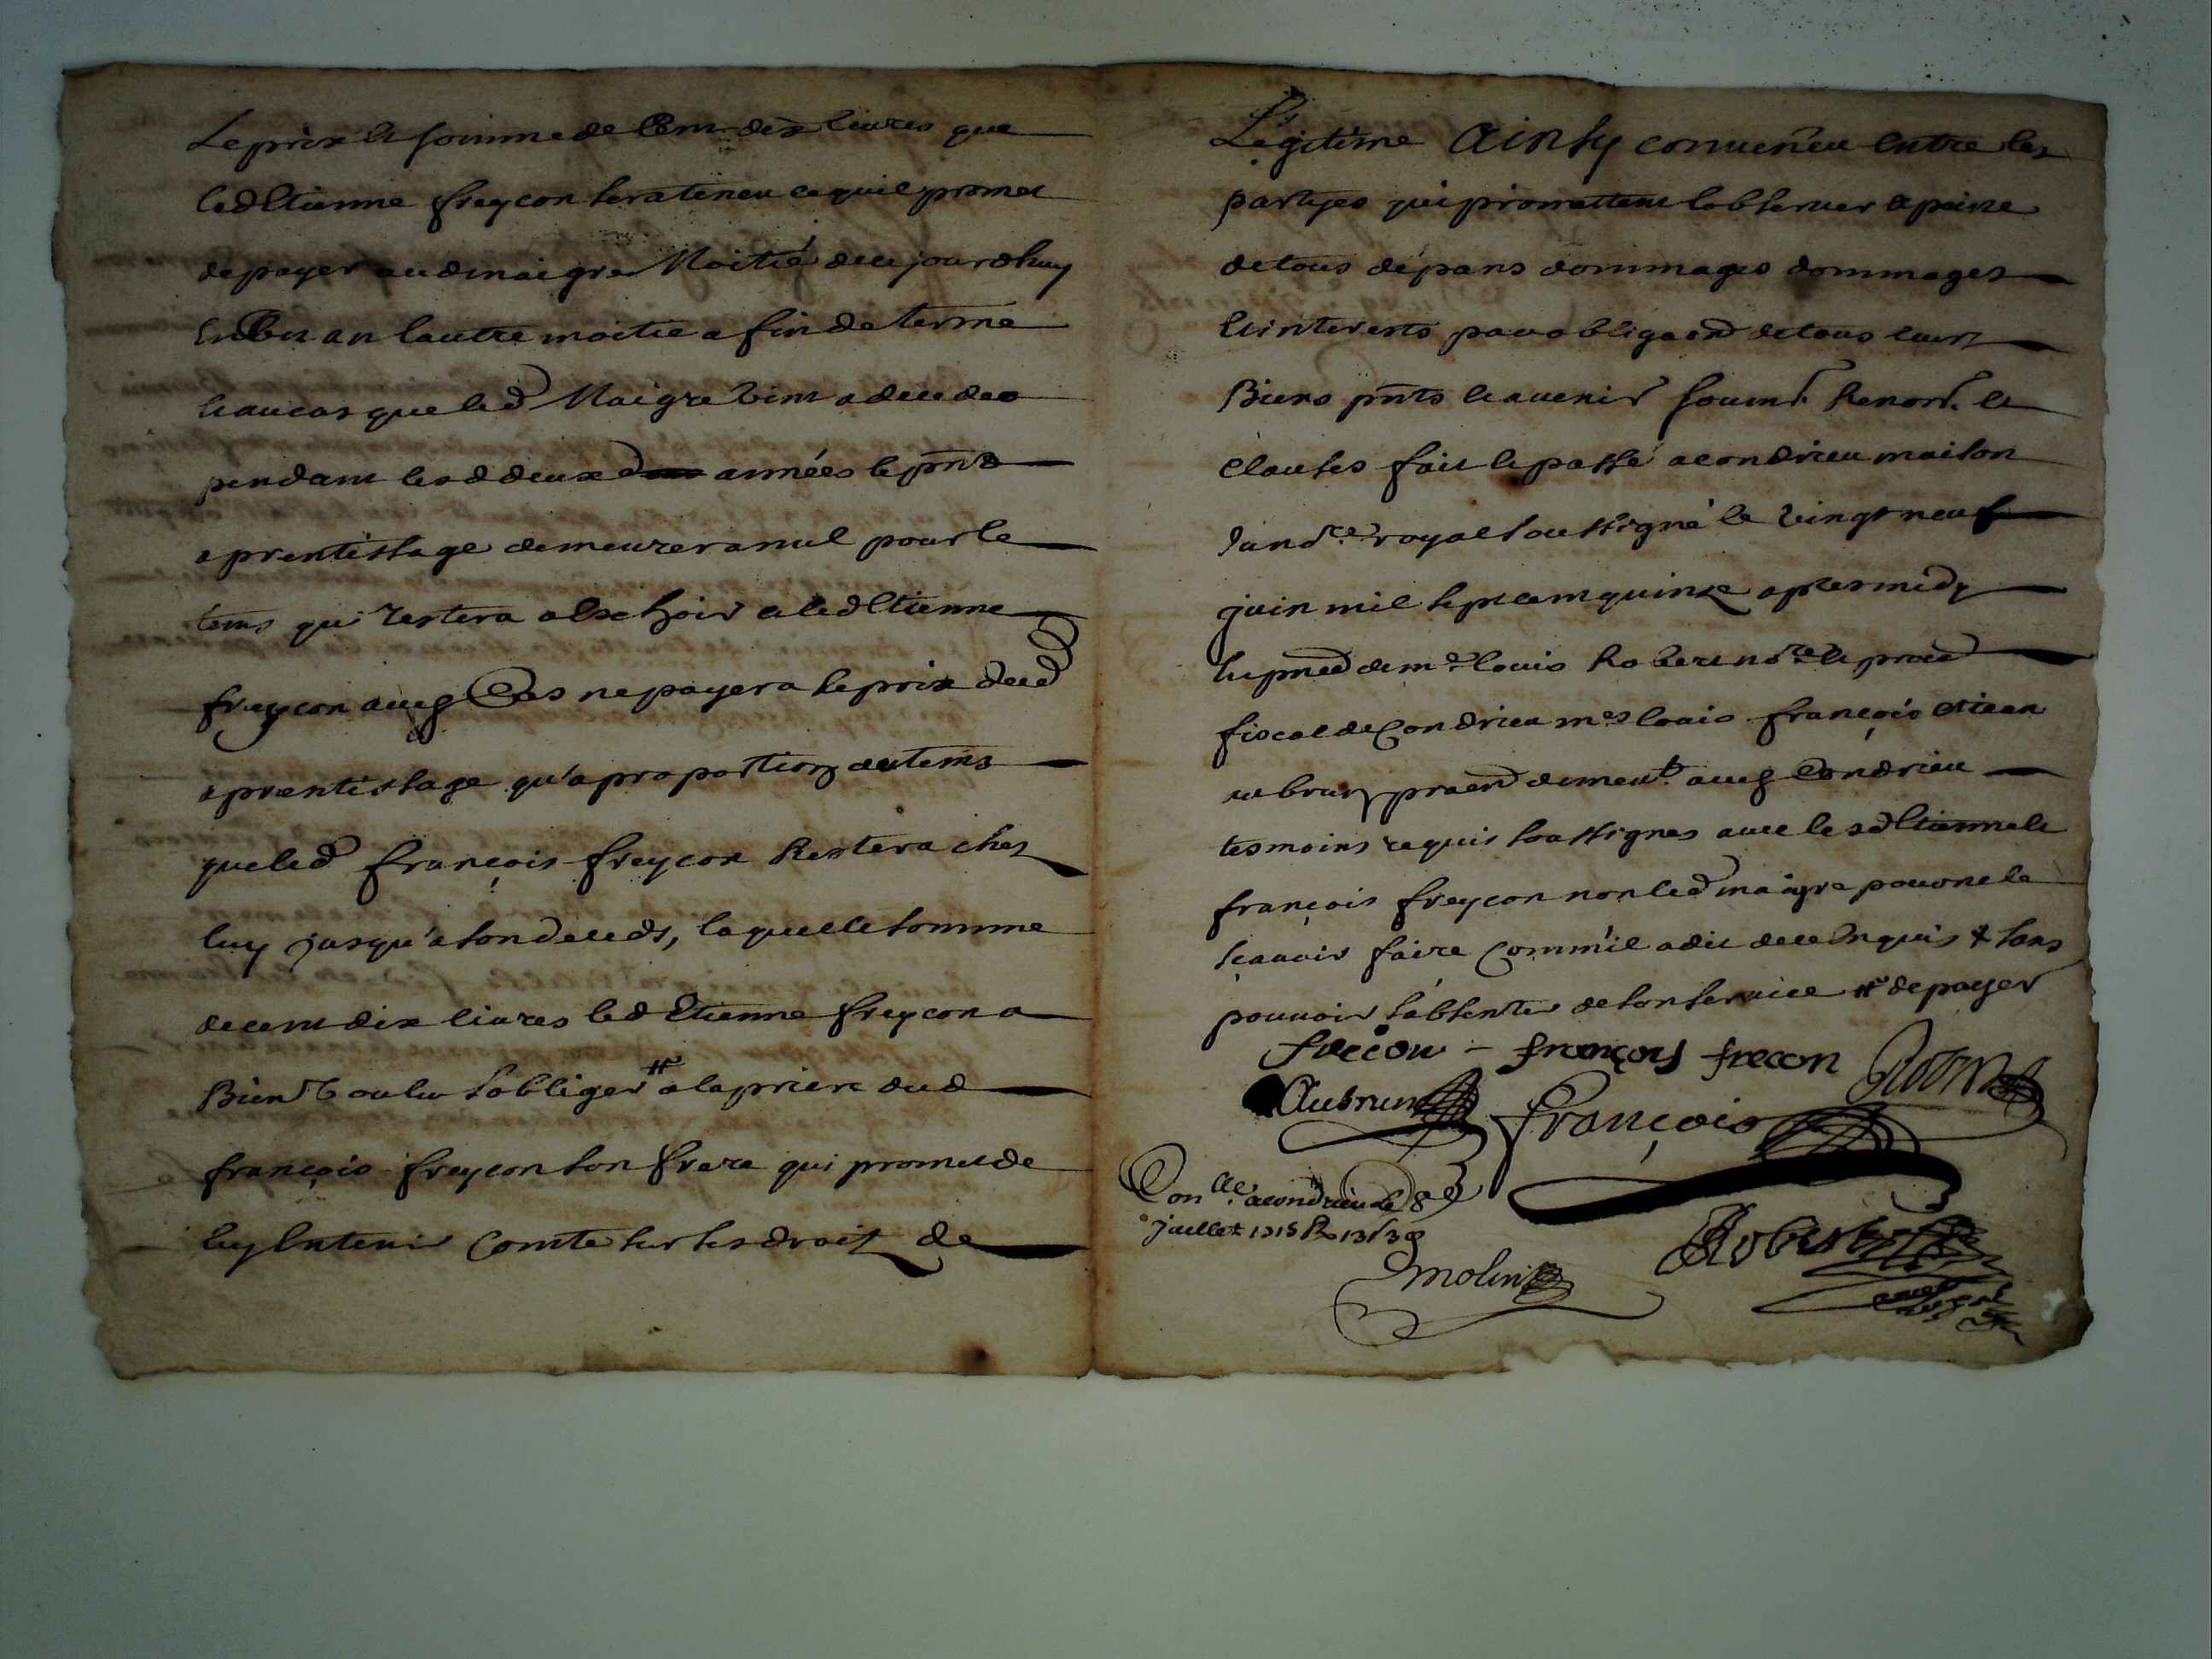 Le prix et somme de Cent dix livres que
led Etienne freycon sera teneu ce quil promet
de payer aud maigre Moitié de ce jourdhuy
en Un an lautre moitie a fin de terme
et au cas que led Maigre vint a decedeo
pendant lesd deux années le pnt
aprentissage demeurera nul pour le
tems qui restera a Eschoir et led Etienne
freycon aud Cas ne payera le prix dud
aprentissage qu'a proportion du tems
que led françois freycon Restera chez
luy jusqu'a son deceds, laquelle somme
de cent dix livres led Etienne freycon a
Bien Voulu s'obliger # a la priere dud
françois freycon son frere qui promet de
luy En tenir Comte sur ses droit de
Legitime Ainsy conveneu entre les
partyes qui promettent lobserver a peine
de tous dépans dommages dommages
et interests par obligaon de tous leurs
Biens pnts et avenir soumn. Renon. et
Clauses fait et passé a condrieu maison
du nore royal soussigné le vingt neuf
juin mil sept cent quinze apres midy
en pnce de me louis Robert nore et procr
fiscal de Condrieu mes louis françois et jean
aubrun praen demeut. aud Condrieu
tesmoins requis soussignes avec lesd Etienne et
françois freycon non led maigre pour ne le
sçavoir faire Comm'il a dit de ce Enquis + sans
pouvoir s'absenter de son service # de payer
freccon - françoys freccon Robert
Aubrun françois
Conlle a condrieu le 8e
juillet 1715 R 13s 3d
molin Robert